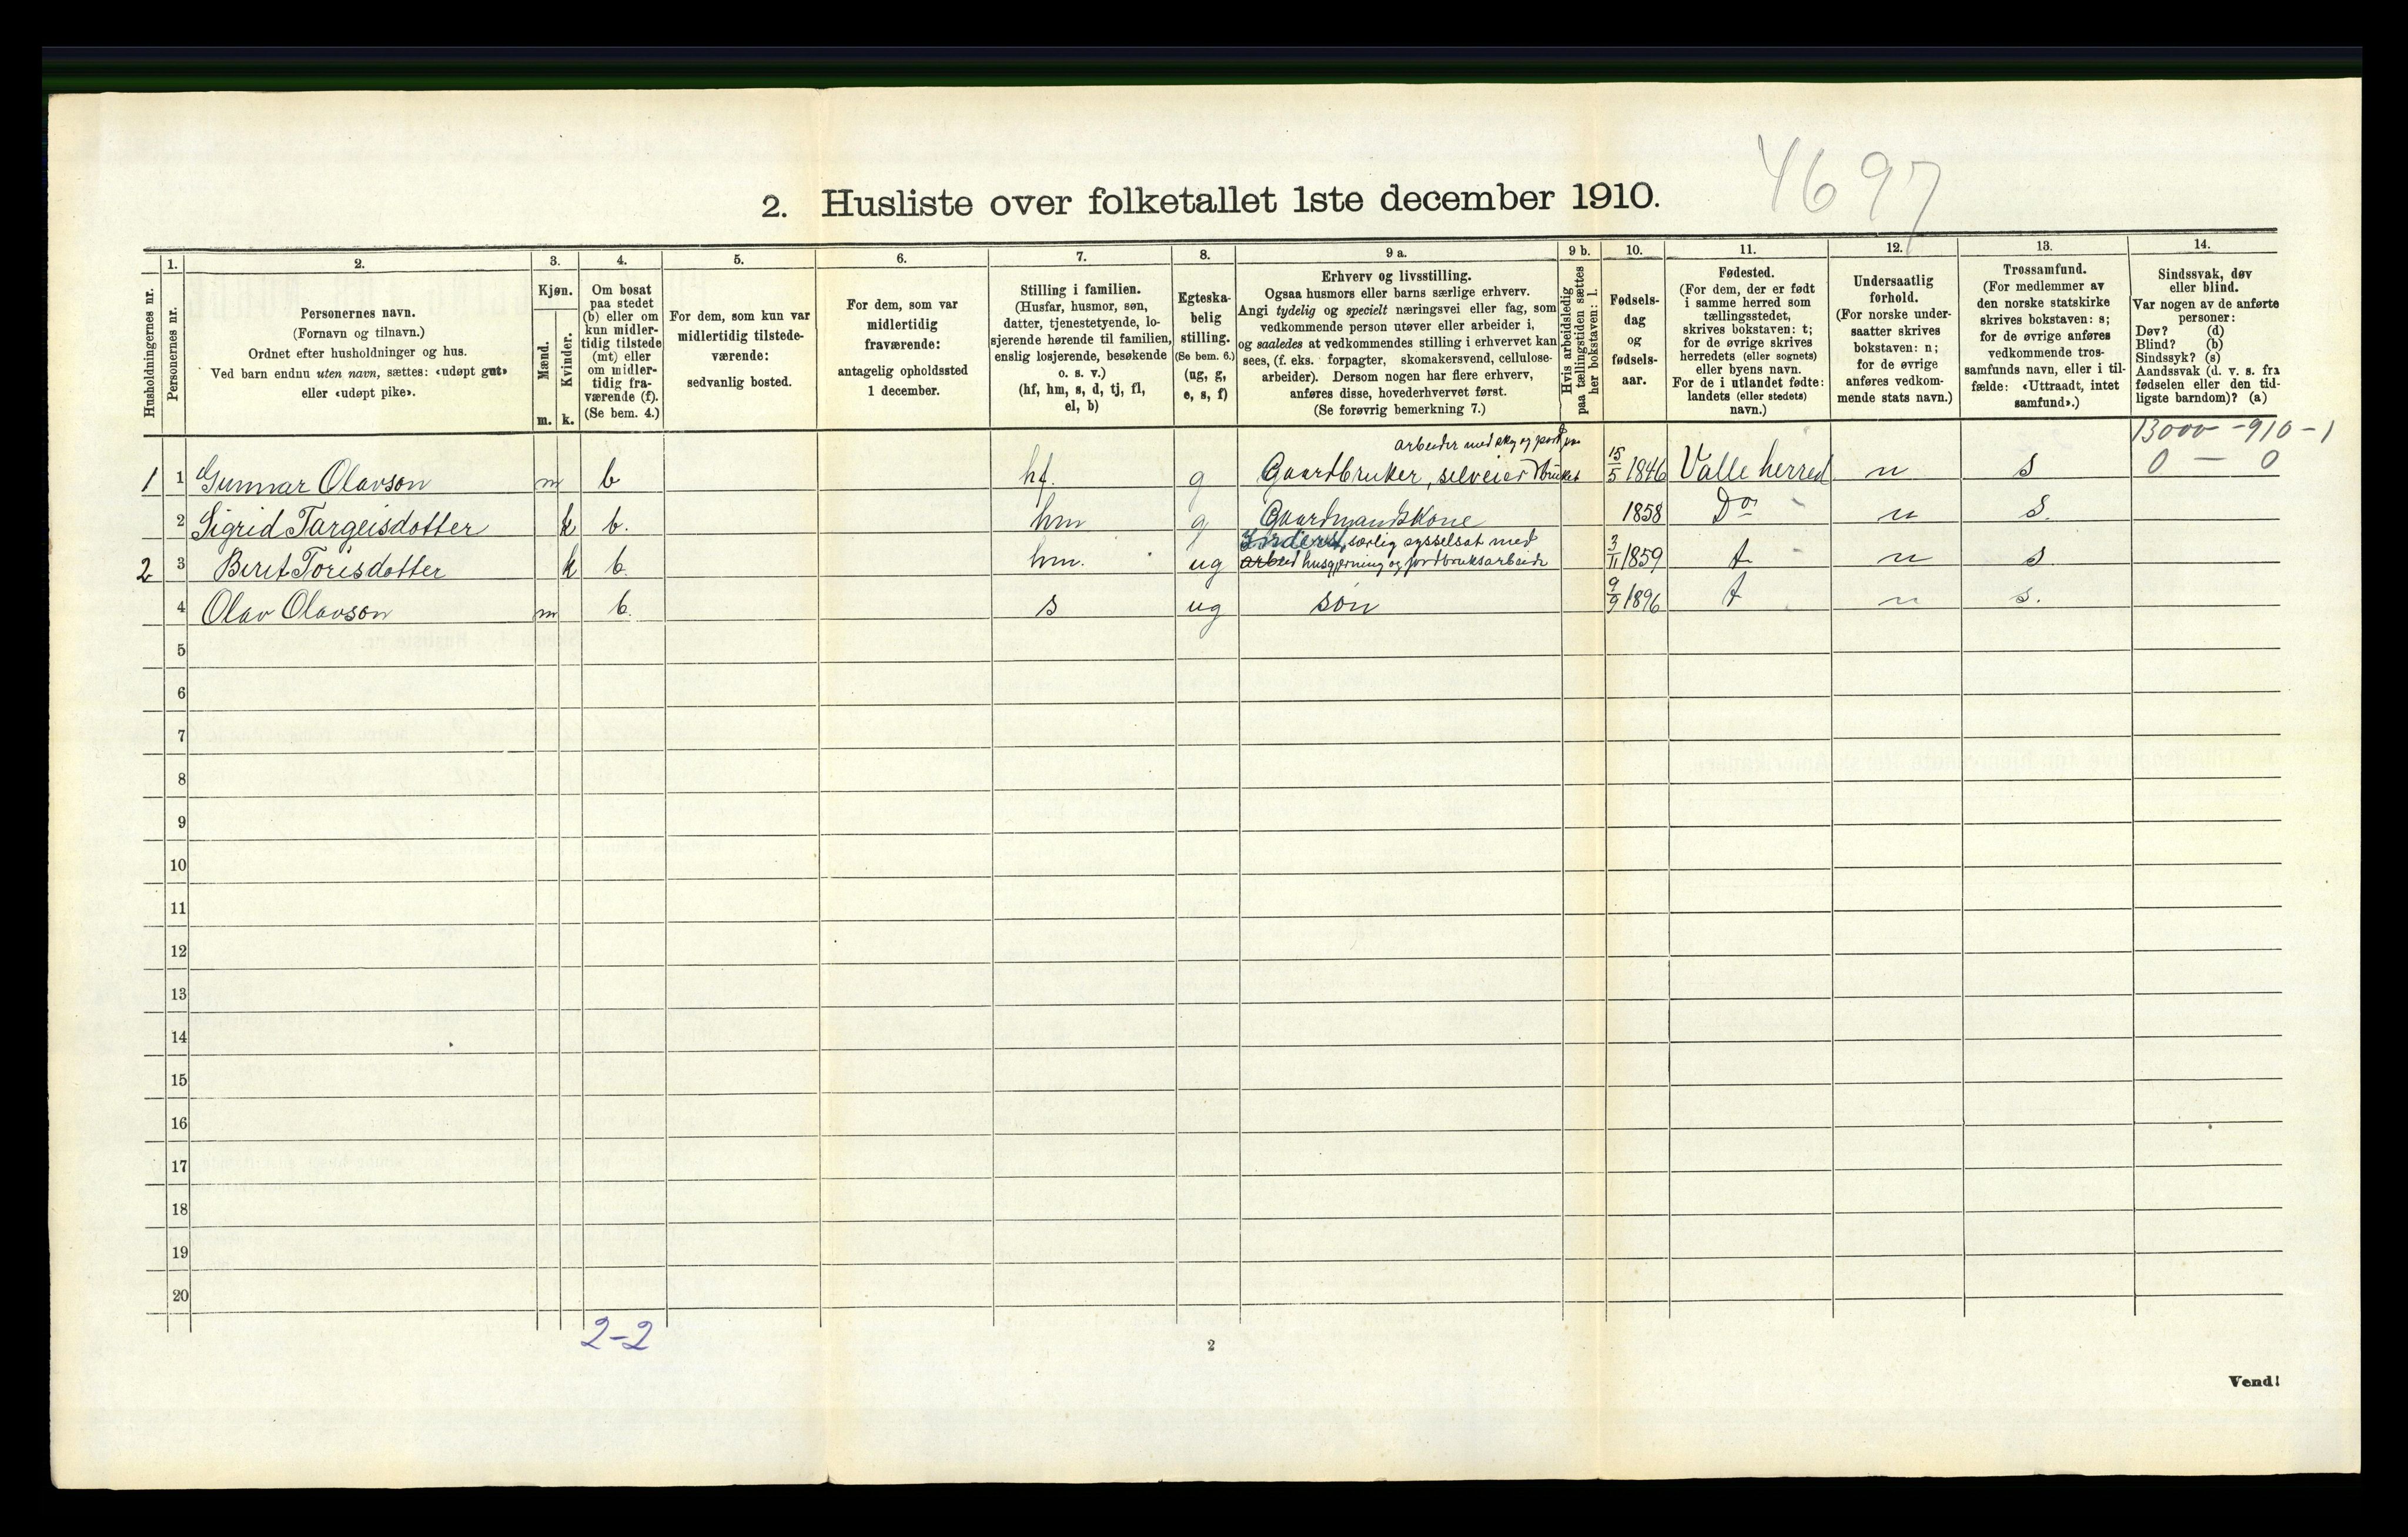 4697
2. Husliste over folketallet 1ste december 1910.
Husholdningernes nr.
1.
Personernes nr.
2.
Personernes navn.
(Fornavn og tilnavn.)
Ordnet efter husholdninger og hus.
Ved barn endnu uten navn, sættes: «udøpt gut»
eller «udøpt pike».
3.
Kjøn.
Mænd.
Kvinder.
m. k.
4.
Om bosat
paa stedet
(b) eller om
kun midler-
tidig tilstede
(mt) eller
om midler-
tidig fra-
værende (f).
(Se bem. 4.)
5.
For dem, som kun var
midlertidig tilstede-
værende:
sedvanlig bosted.
6.
For dem, som var
midlertidig
fraværende:
antagelig opholdssted
1 december.
7.
Stilling i familien.
(Husfar, husmor, søn,
datter, tjenestetyende, lo-
sjerende hørende til familien,
enslig losjerende, besøkende
o. s. v.)
(hf, hm, s, d, tj, fl,
el, b)
8.
Egteska-
belig
stilling.
(Se bem. 6.)
(ug, g,
e, s, f)
9 a.
Erhverv og livsstilling.
Ogsaa husmors eller barns særlige erhverv.
Angi tydelig og specielt næringsvei eller fag, som
vedkommende person utøver eller arbeider i,
og saaledes at vedkommendes stilling i erhvervet kan
sees, (f. eks. forpagter, skomakersvend, cellulose-
arbeider). Dersom nogen har flere erhverv,
anføres disse, hovederhvervet først.
(Se forøvrig bemerkning 7.)
9 b.
Hvis arbeidsledig
paa tællingstiden sættes
her bokstaven: l.
10.
Fødsels-
dag
og
fødsels-
aar.
11.
Fødested.
(For dem, der er født
i samme herred som
tællingsstedet,
skrives bokstaven: t;
for de øvrige skrives
herredets (eller sognets)
eller byens navn.
For de i utlandet fødte:
landets (eller stedets)
navn.)
12.
Undersaatlig
forhold.
(For norske under-
saatter skrives
bokstaven: n;
for de øvrige
anføres vedkom-
mende stats navn.)
13.
Trossamfund.
(For medlemmer av
den norske statskirke
skrives bokstaven: s;
for de øvrige anføres
vedkommende tros-
samfunds navn, eller i til-
fælde: «Uttraadt, intet
samfund».)
14.
Sindssvak, døv
eller blind.
Var nogen av de anførte
personer:
Døv? (d)
Blind? (b)
Sindssyk? (s)
Aandssvak (d. v. s. fra
fødselen eller den tid-
ligste barndom)? (a)
13000 - 910 - 1
0 - 0
arbeider med skog og jord paa
1 1 Gunnar Olavson m b hf. g Gaardbruker, selveier bruket 15/5 1846 Valle herred n s
2 Sigrid Targeisdotter k b. hm g Gaardmandskone 1858 Do n s.
Inderst, særlig sysselsat med
2 3 Berit Torisdotter k b. hm. ug arbeid husgjerning og jordbruksarbeide 3/11 1859 t n s.
4 Olav Olavson m b. s ug søn 9/9 1896 t n s.
5
6
7
8
9
10
11
12
13
14
15
16
17
18
19
20
2-2
2
Vend!